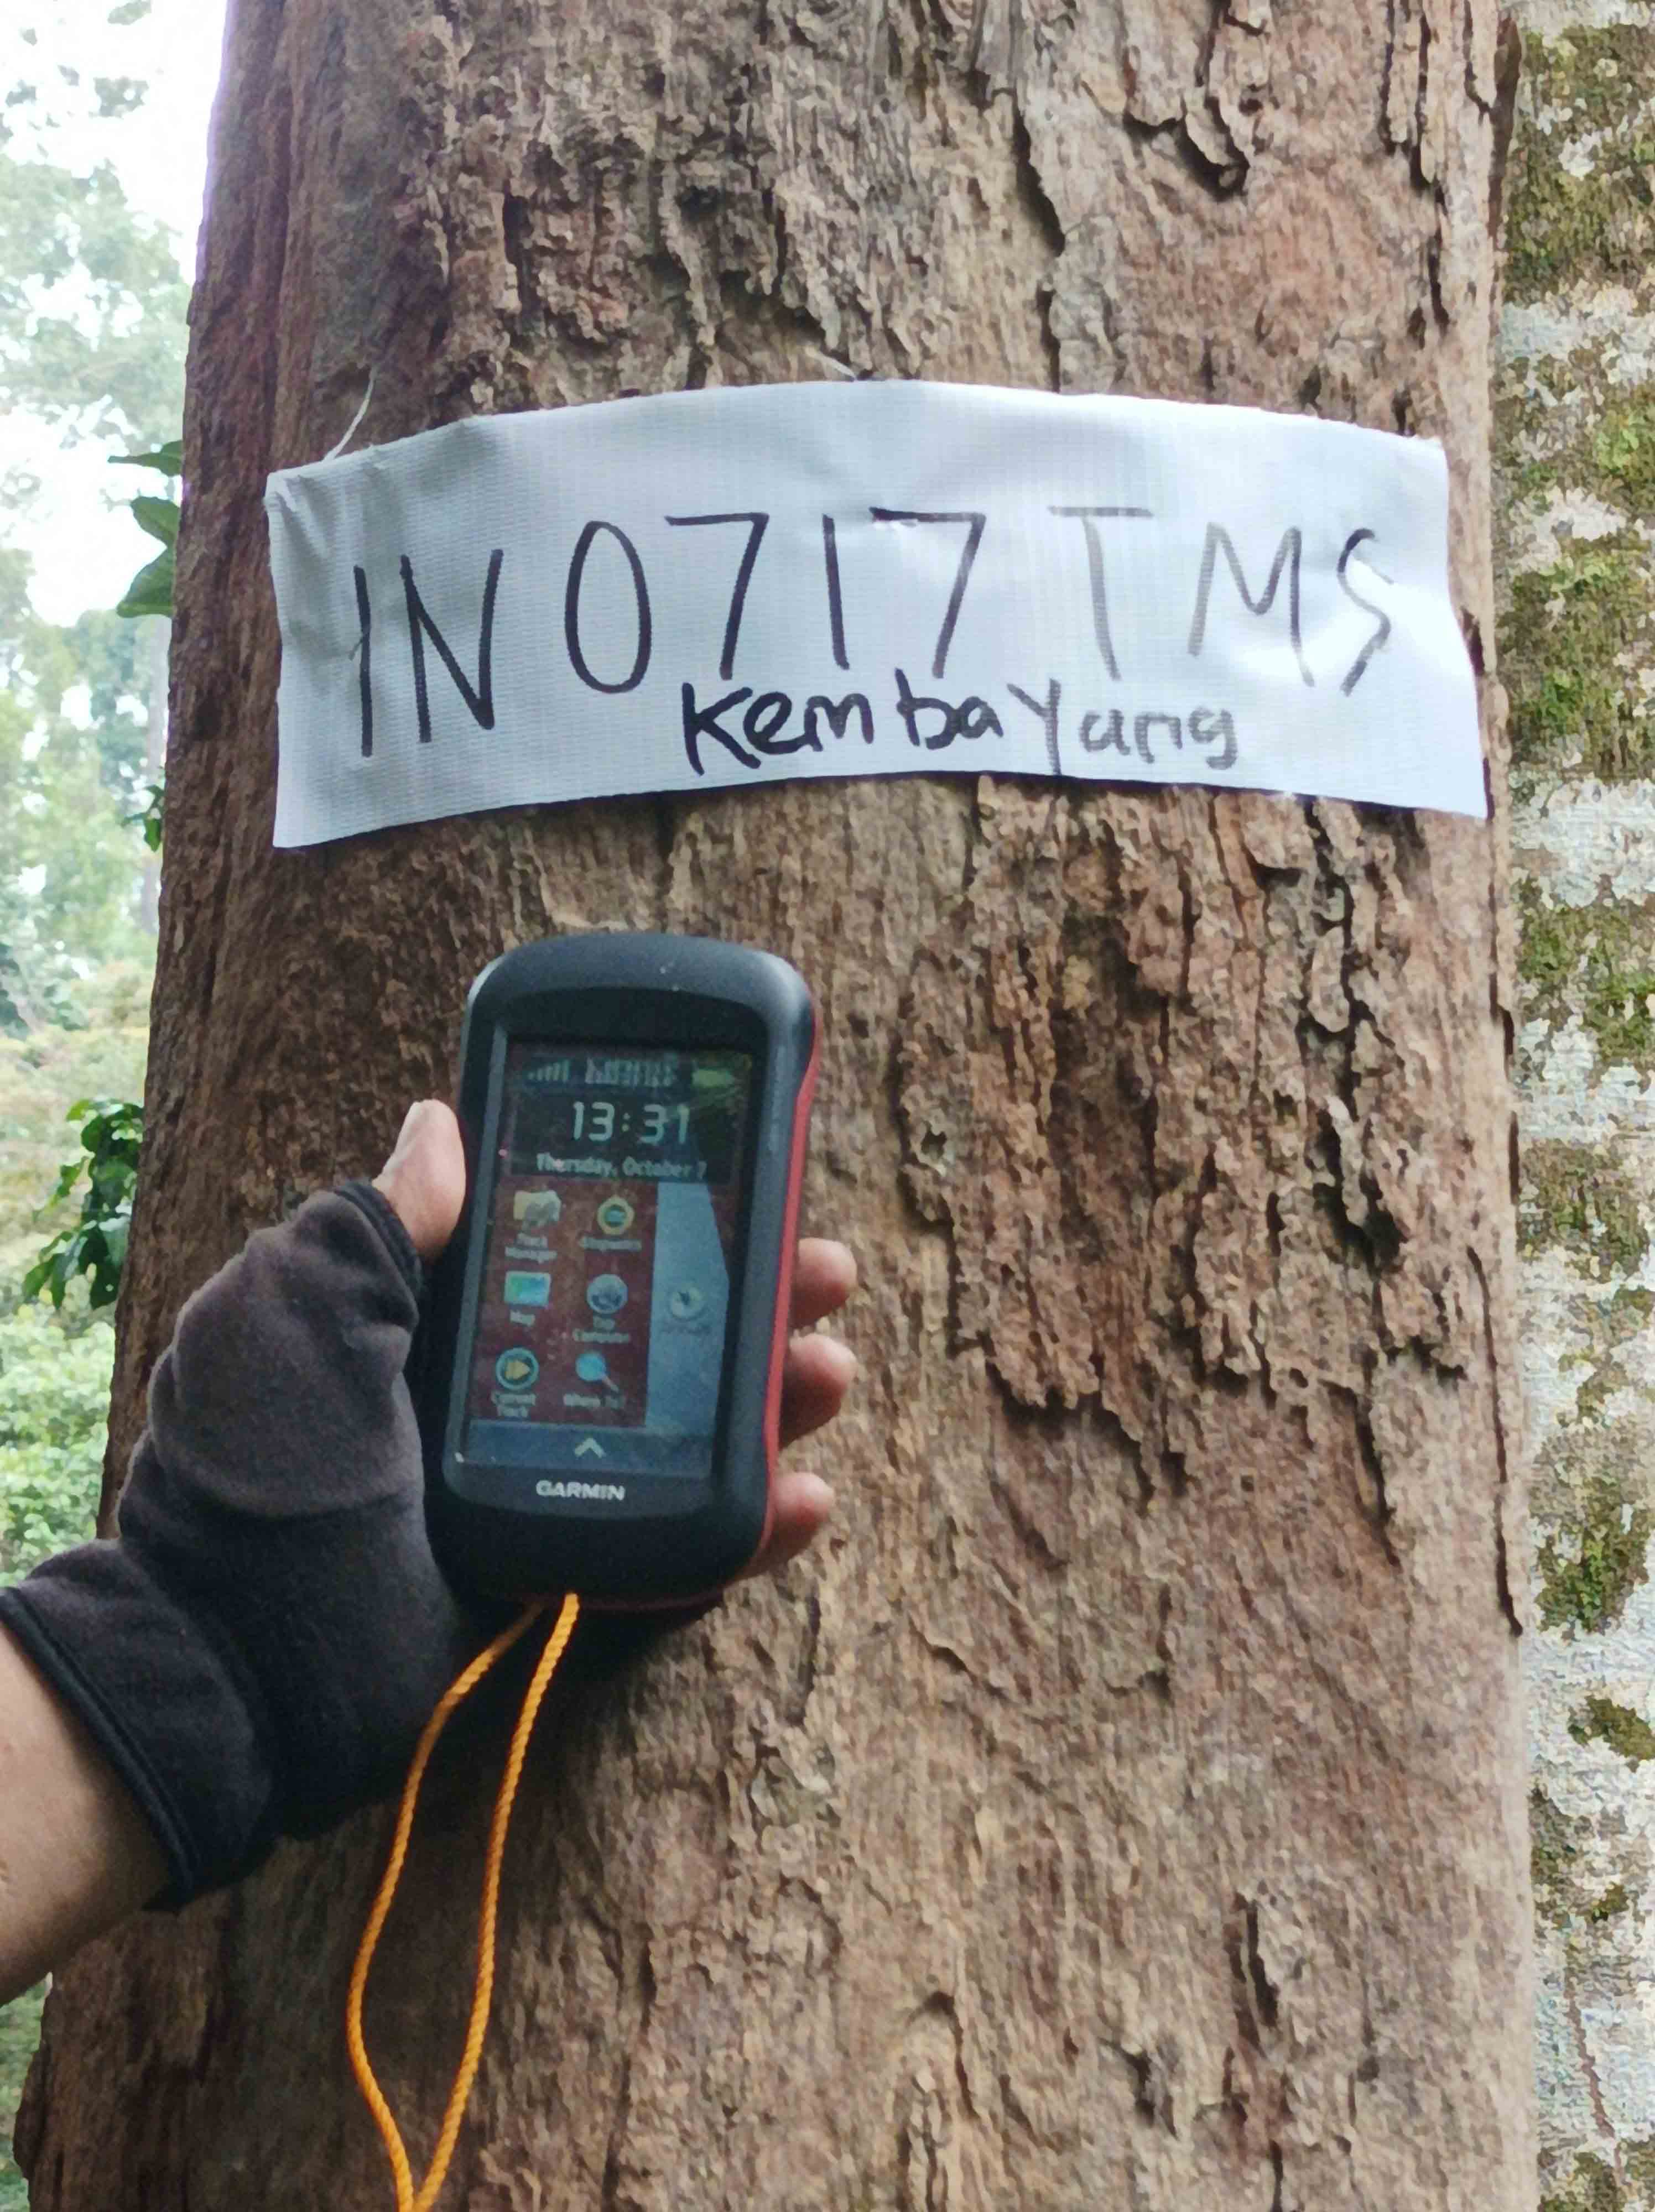 IN 0717 TMS
Kembayang
13:31
Thursday, October 7
Track
Manager
Map
Trip
Computer
Current
Track
Where To?
GARMIN